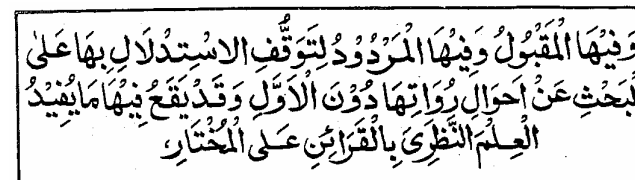 وَفِيْهَا الْمَقْبُولُ وَفِيْهَا الْمَرْدُوْدُ لِتَوَقُّفِ الِاسْتِدْلَالِ بِهَا عَلىٰ
لْبَحْثِ عَنْ اَحْوَالِ رُوَاتِهَا دُوْنَ الْاَوَّلِ وَقَدْ يَقَعُ فِيْهَا مَا يُفِيْدُ
الْعِلْمَ النَّظَرِىَّ بِالْقَرَائِنِ عَلَى الْمُخْتَارِ،